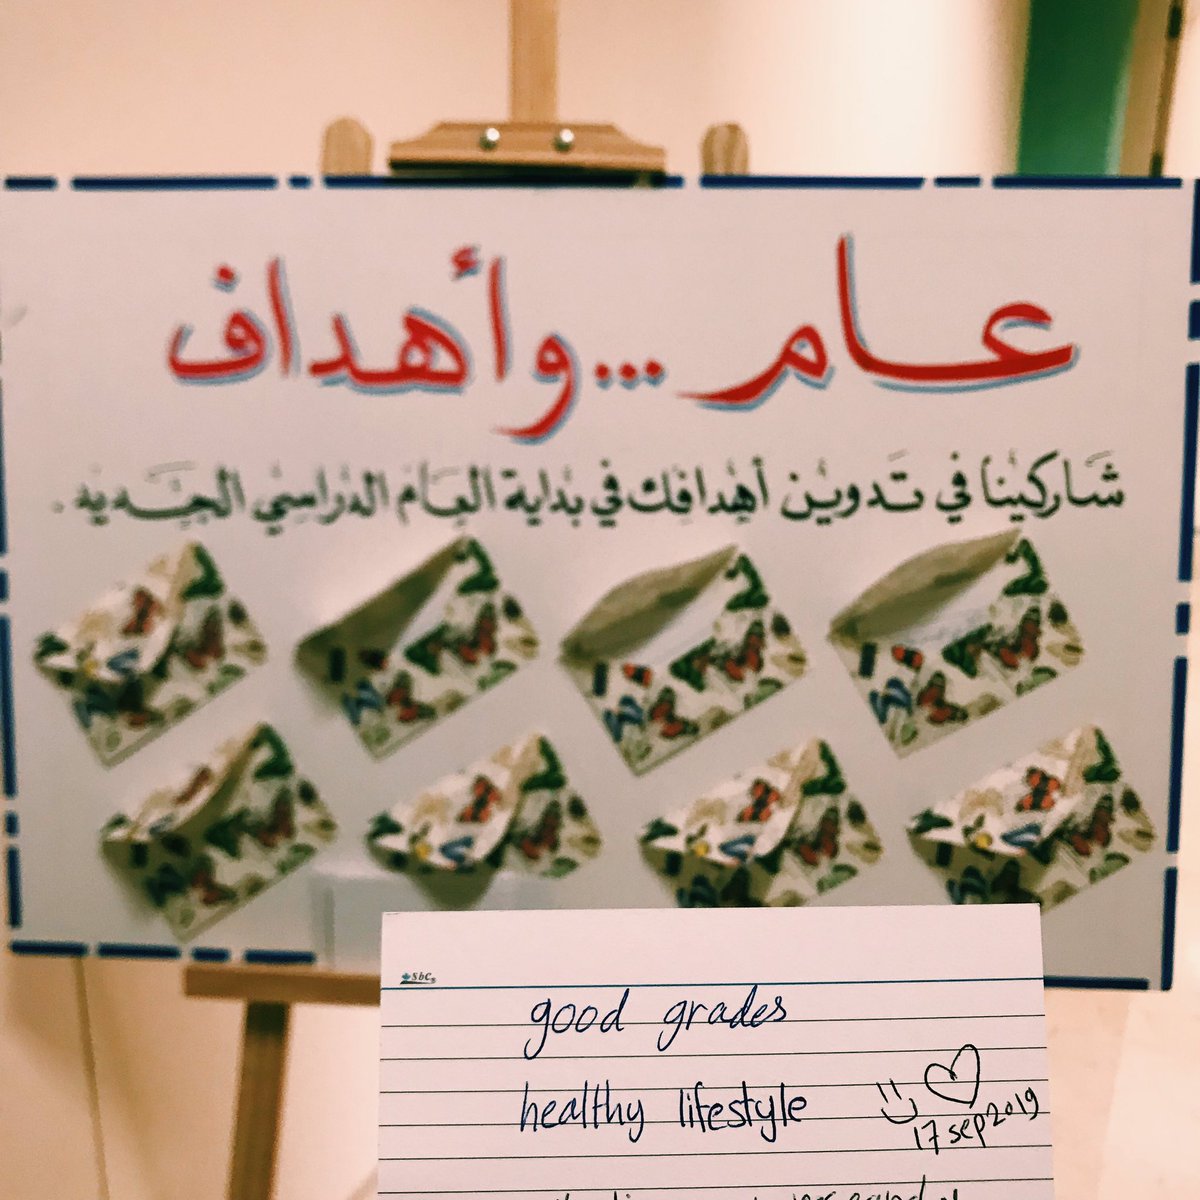 عام ...وأهداف
شاركينا في تدوين أهدافك في بداية العام الدراسي الجديد .
sbc
good grades
healthy lifestyle
17 sep 2019